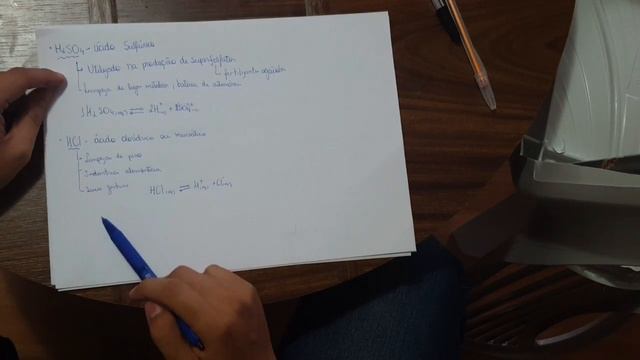 • H₂SO₄ - ácido sulfúrico
Utilizado na produção de superfosfatos
fertilizante agrícola
Limpeza de ligas metálicas, bateria de automóveis
H₂SO₄(aq) ⇌ 2H⁺(aq) + SO₄²⁻(aq)
• HCl - ácido clorídrico ou muriático
Limpeza de piso
Indústria alimentícia
Suco
HCl(aq) ⇌ H⁺(aq) + Cl⁻(aq)